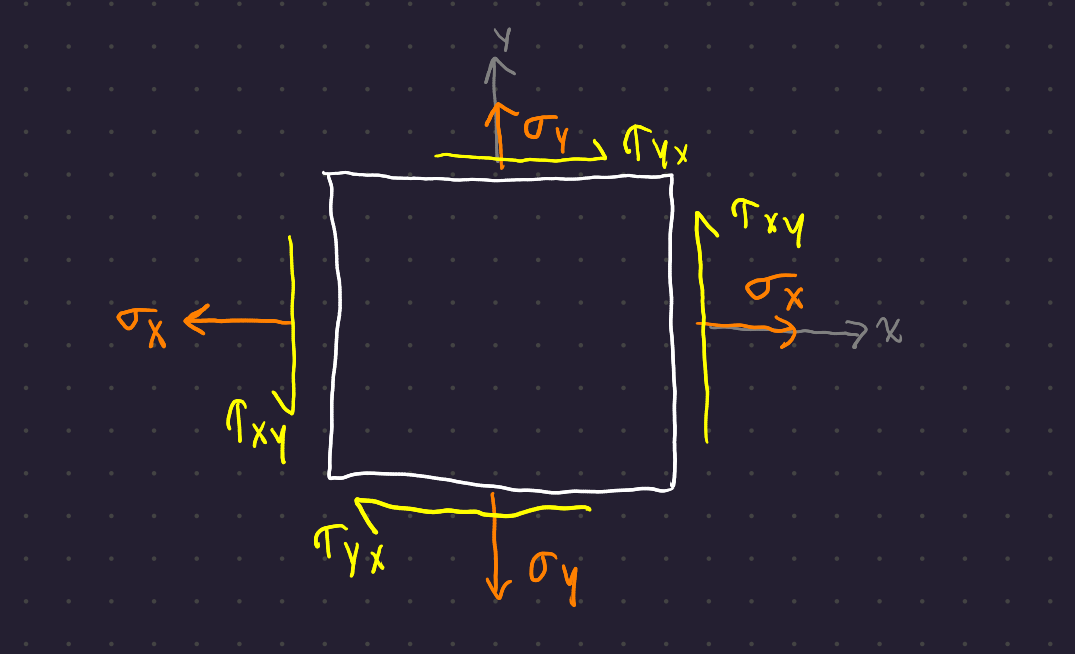 y
σy
τyx
τxy
σx
x
σx
τxy
τyx
σy